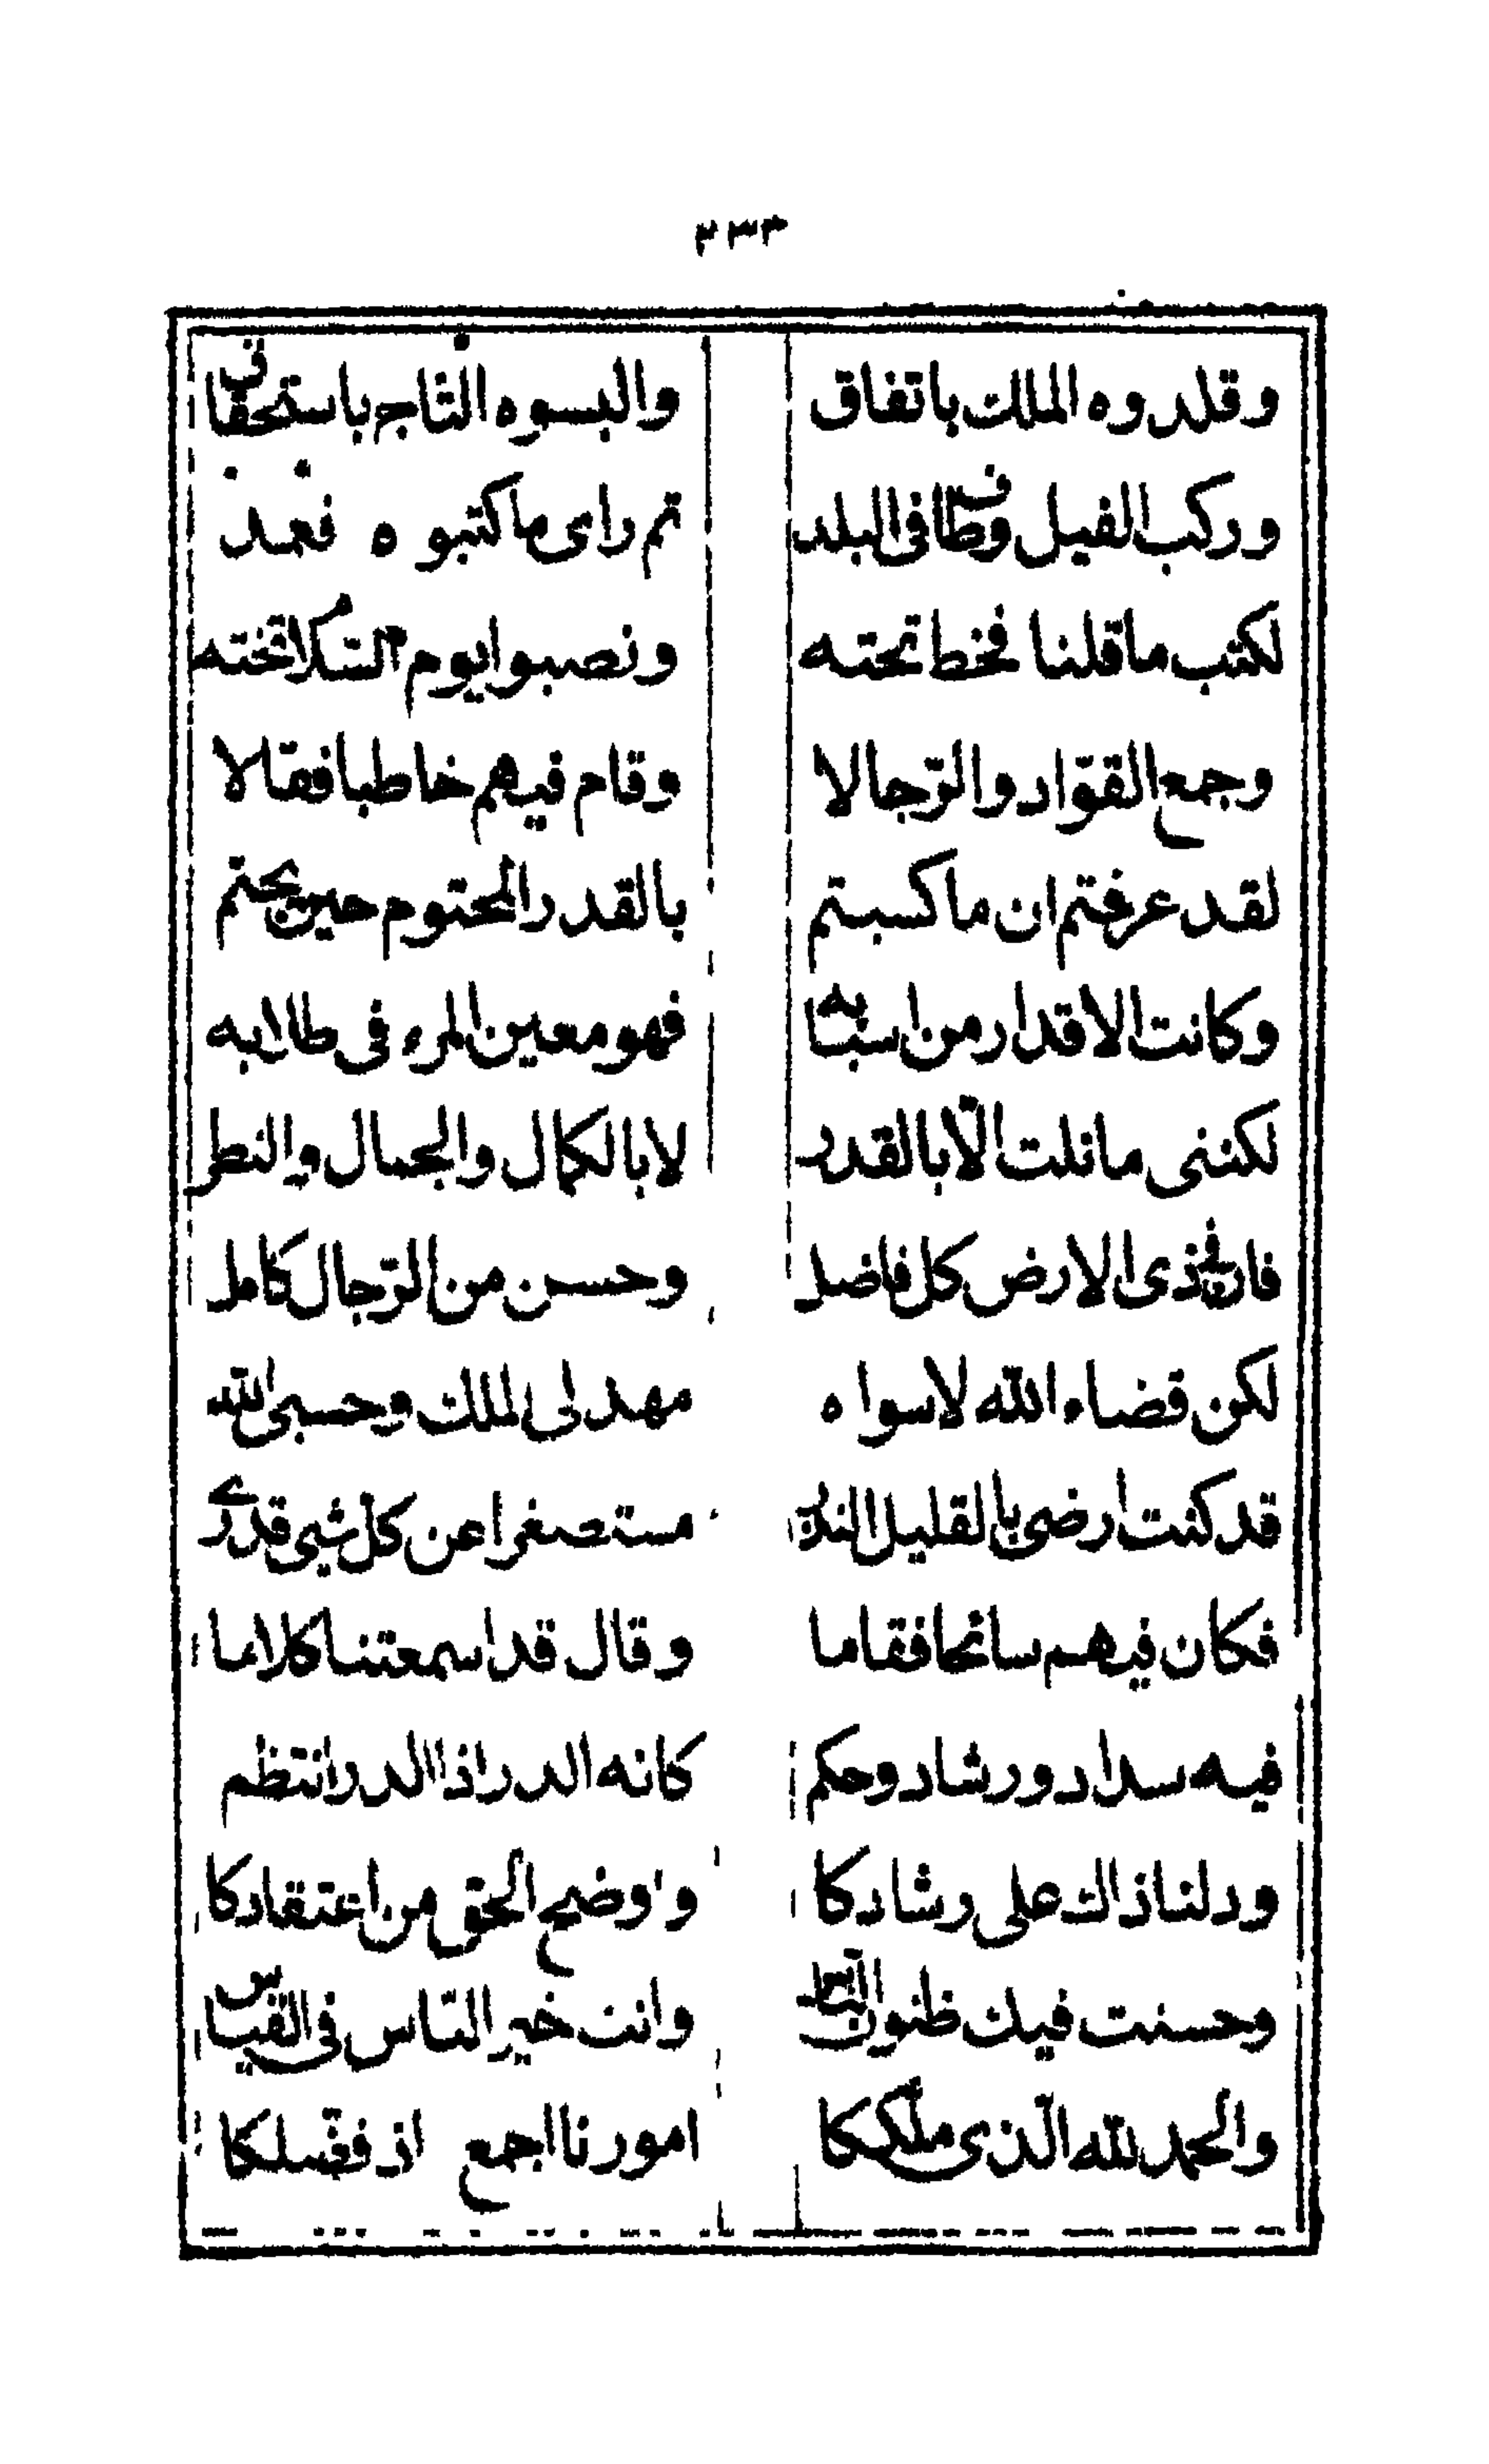 ٢٣٣
وقلدوه الملك باتفاق والبسوه التّاج باستحقاق
وركب الفيل وطاف فى البلد ثم راى ما كتبوه فعمد
لكتب ما قلنا فخط تحته ونصبوا يوم التكلا تخته
وجمع القوّاد والرّجالا وقام فيهم خاطبا فقالا
لقد عرفتم ان ما كسبتم بالقدر المحتوم حين جئتم
وكانت الاقدار من اسبابه فهو معين المرء فى طلابه
لكننى ما نلت الّا بالقدر لا بالكمال والجمال والنظر
فان فى ذى الارض كل فاضل وحسن من الرّجال كامل
لكن قضاء الله لا سواه مهد لى الملك وحسبى الله
قد كنت ارضى بالقليل النذر مستصغرا عن كل شيى قدرى
فكان فيهم سائحا فقاما وقال قد اسمعتنا كلاما
فيه سداد ورشاد وحكم كانه الدر اذا الدر انتظم
ودلنا ذاك على رشادكا ووضح الحق من اعتقادكا
وحسنت فيك ظنون النّاس وانت خير النّاس فى القياس
والحمد لله الّذى ملّككا امورنا اجمع اذ فضّلكا